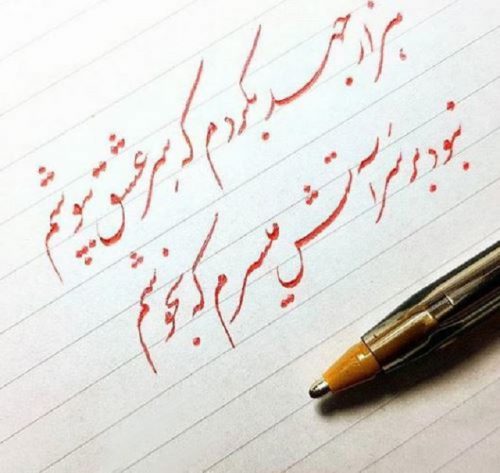 هزار جهد بکردم که سر عشق بپوشم
نبود بر سر آتش میسرم که نجوشم